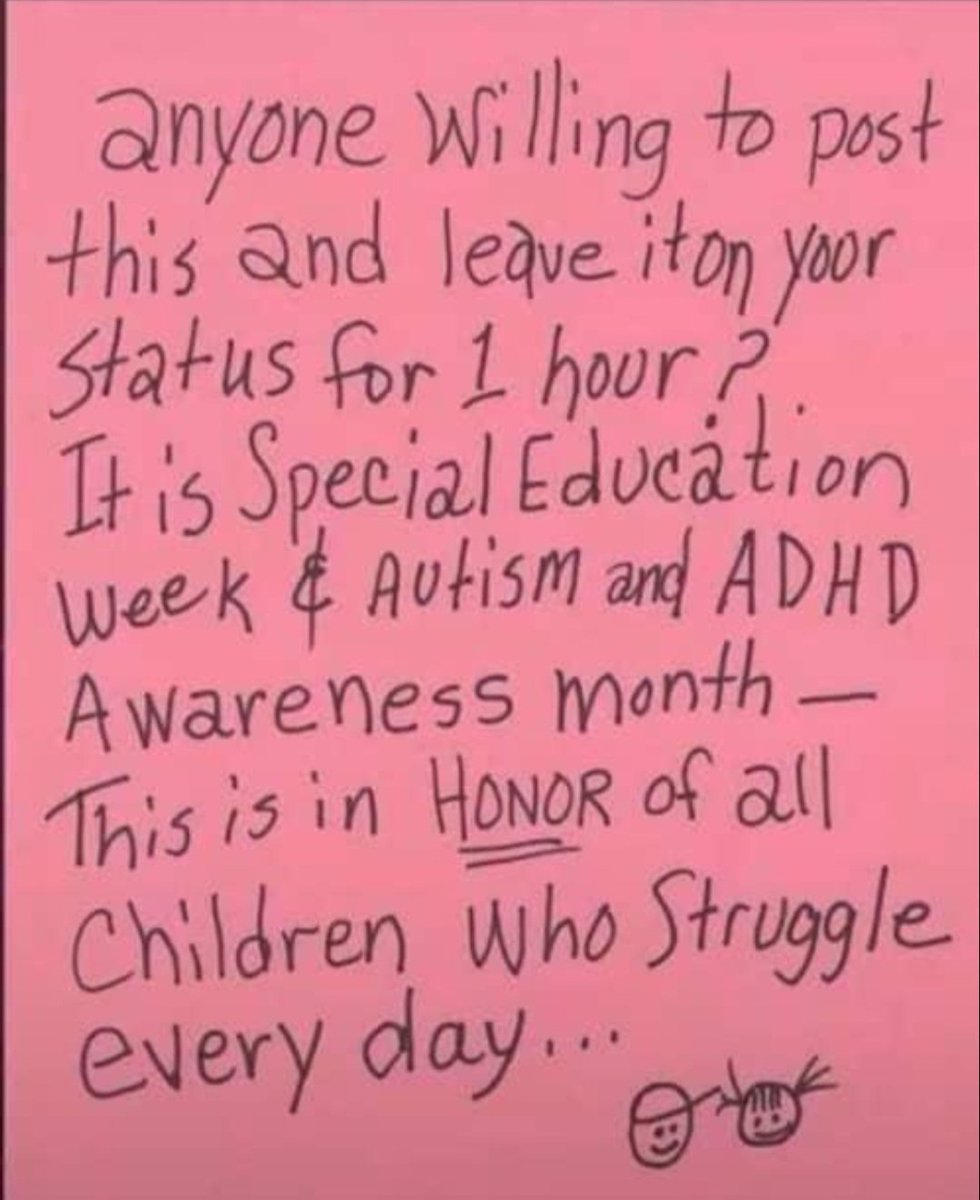 anyone willing to post
this and leave it on yoor
Status for 1 hour?
It is Special Education
week & Autism and ADHD
Awareness month —
This is in HONOR of all
Children who Struggle
every day...